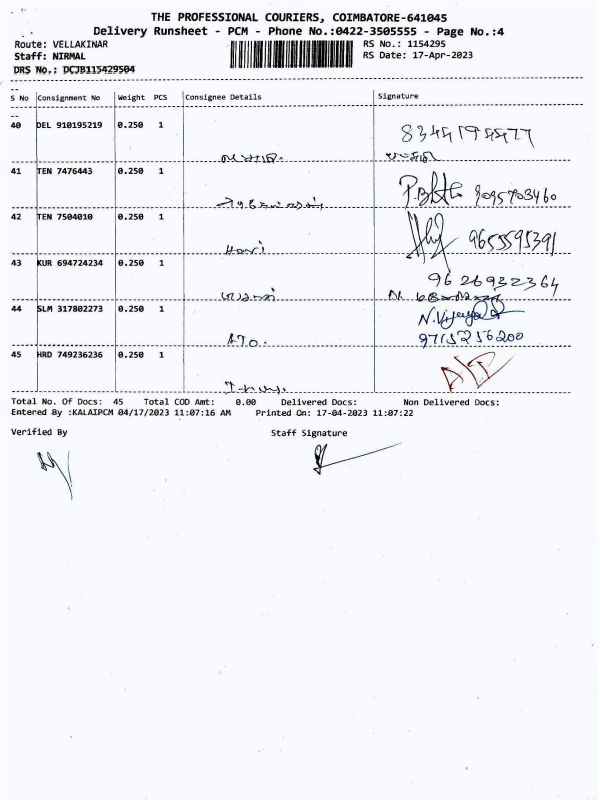 THE PROFESSIONAL COURIERS, COIMBATORE-641045
Delivery Runsheet - PCM - Phone No.:0422-3505555 - Page No.:4
Route: VELLAKINAR RS No.: 1154295
Staff: NIRMAL RS Date: 17-Apr-2023
DRS No.: DCJB115429504
S No Consignment No Weight PCS Consignee Details Signature
40 DEL 910195219 0.250 1
41 TEN 7476443 0.250 1
9095703460
42 TEN 7504010 0.250 1
9655595391
Hari
43 KUR 694724234 0.250 1
9626932364
44 SLM 317802273 0.250 1 N.Vijaya
ATO. 9715256200
45 HRD 749236236 0.250 1
Total No. Of Docs: 45 Total COD Amt: 0.00 Delivered Docs: Non Delivered Docs:
Entered By :KALAIPCM 04/17/2023 11:07:16 AM Printed On: 17-04-2023 11:07:22
Verified By Staff Signature